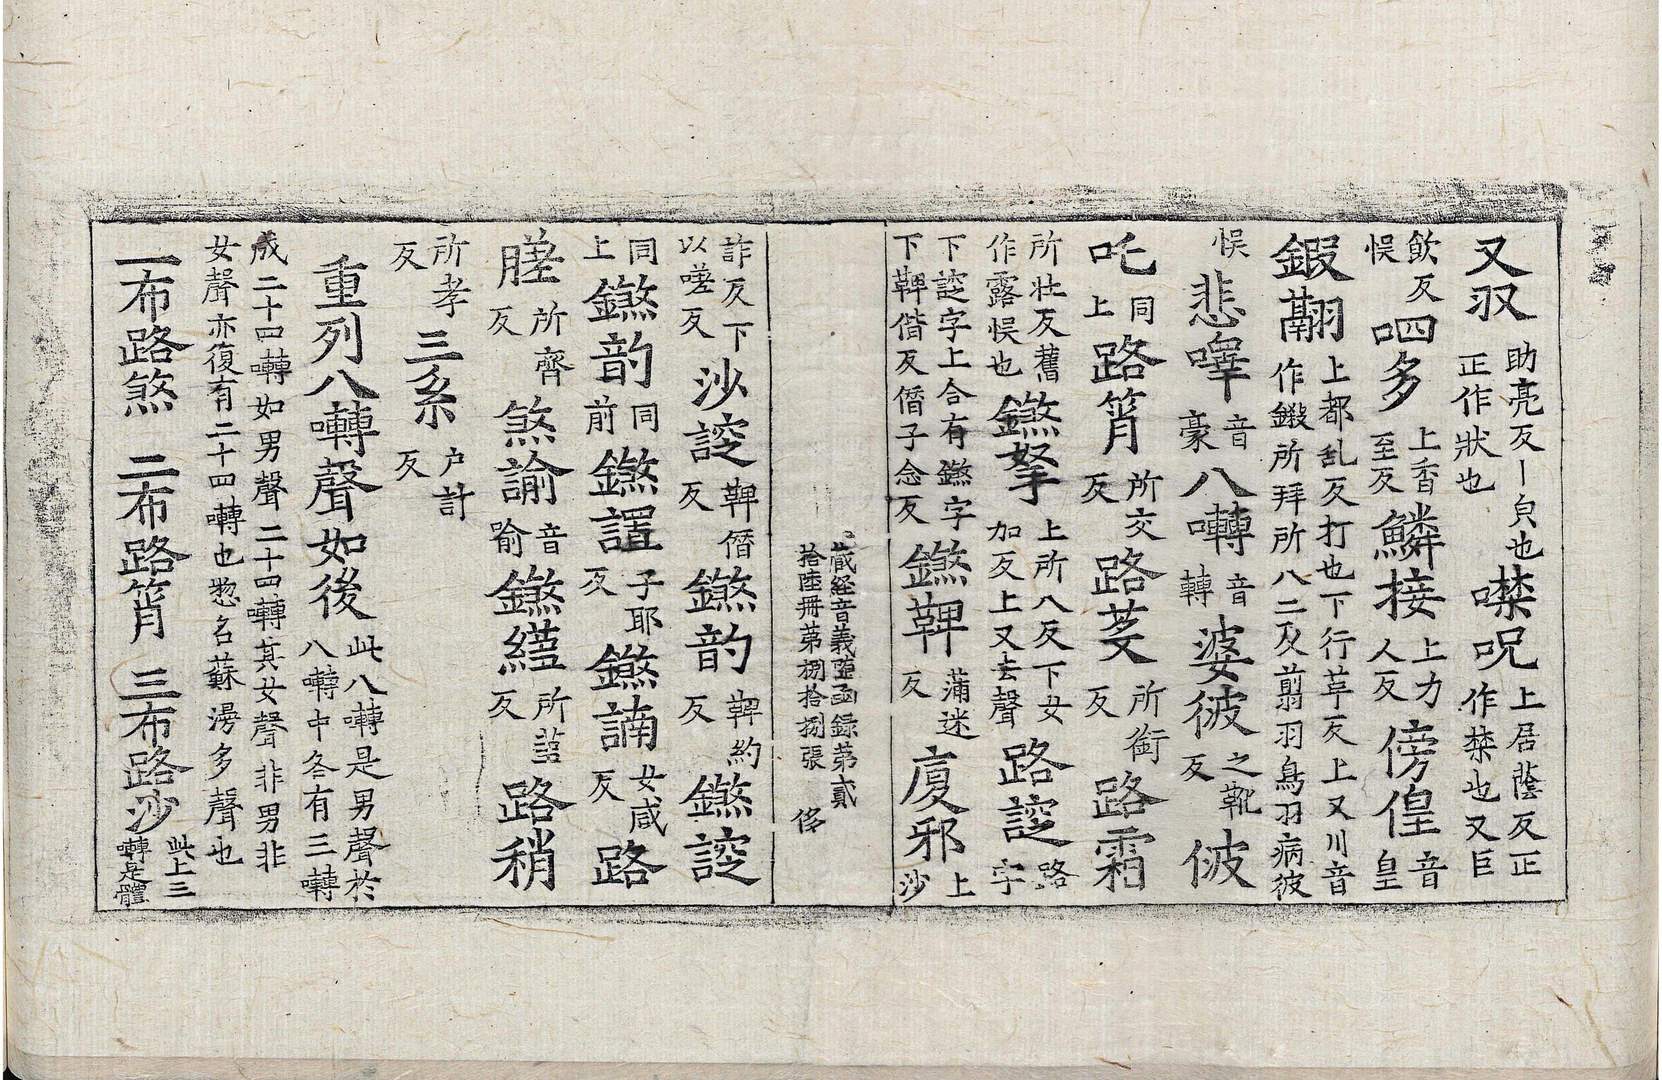 又㕚助亮反丨皃也正作狀也㗲呪上居蔭反正作㯲也又巨
飲反悮呬多上香至反鱗接上力人反傍偟音皇
鍜翽上都乱反打也下行草反上又川音作鍛所拜所八二反翦羽鳥羽病彼
悮悲嘷音豪八囀音轉婆彼之靴反㑉
吒同上路筲所交反路芟所銜反路霜
所壯反舊作露悮也鑠拏上所八反下女加反上又去聲路諚路字
下諚字上合有鑠字下鞞偕反僭子念反鑠鞞蒲迷反廈邪上沙
藏經音義隨函録弟貳拾陸冊苐捌拾捌張 侈
詐反下以嗟反沙諚鞞僭反鑠韵鞞約反鑠諚
同上鑠韵同前鑠謯子耶反鑠諵女咸反路
䐤所齊反煞諭音喻鑠䌶所反路稍
所孝反三系户計反
重列八囀聲如後此八囀是男聲於八囀中各有三囀
成二十四囀如男聲二十四囀其女聲非男非
女聲亦復有二十四囀也惣名蘇漫多聲也
一布路煞 二布路筲 三布路沙此上三囀是體